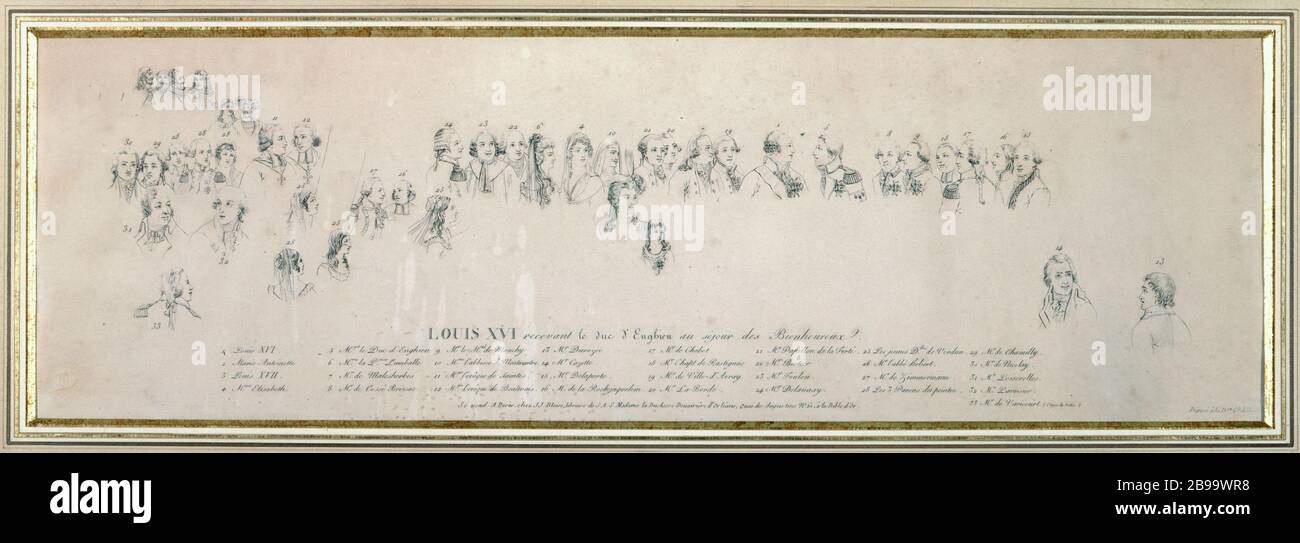 LOUIS XVI recevant le duc d'Enghien au séjour des Bienheureux.
1 Louis XVI
2 Marie Antoinette
3 Louis XVII
4 Mme Elisabeth
5 Mgr le Duc d'Enghien
6 Mme la Pse Lamballe
7 Mr de Malesherbes
8 Mr de Cossé Brissac
9 Mr le Mal de Mouchy
10 Mme l'abbesse de Montmartre
11 Mr l'évêque de Saintes
12 Mr l'évêque de Beauvais
13 Mr Durozoy
14 Mr Cazotte
15 Mr Delaporte
16 M. de la Rochejaquelein
17 Mr de Chabot
18 Mr Chapt de Rastignac
19 Mr de Ville d'Avray
20 Mr La Borde
21 Mr Papillon de la Ferté
22 Mr
23 Mr Foulon
24 Mr Delaunay
25 Les jeunes Dlles de Verdun
26 Mr l'abbé
27 Mr de Zimmermann
28 Les 3 Parens du peintre
29 Mr de Chamilly
30 Mr de Nicolay
31 Mr Loizerolles
32 Mr
33 Mr de Varicourt
Se vend à Paris, chez J.J. Blaise, libraire de S.A.S. Madame la Duchesse Douairière d'Orléans, Quai des Augustins No 61, à la Bible d'Or.
alamy
Image ID: 2B99WR8
www.alamy.com